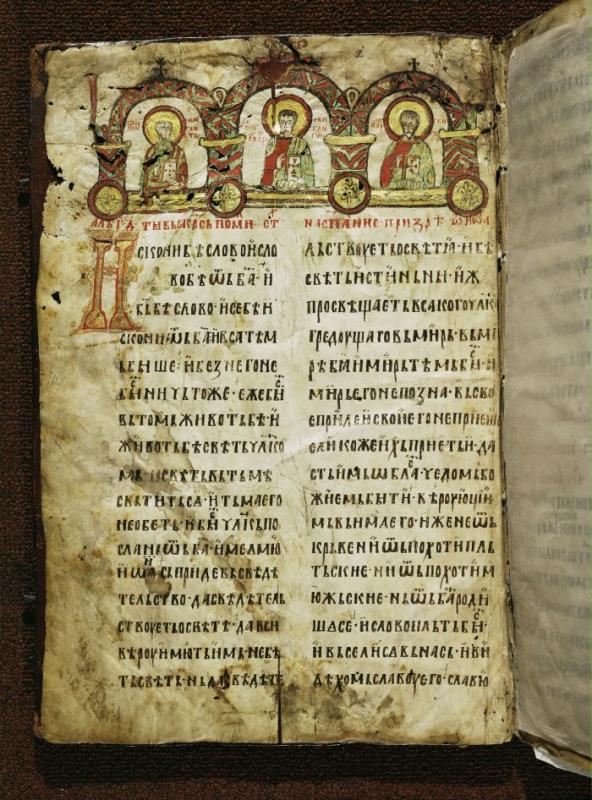 сконибѣсловоисло
вобѣѿба҃·и
бъ҃бѣслово·исебѣи
скониѿба҃ивсатѣм
ьбыше·ибезнегоне
бы҇ничьтоже·ежебы҇
втомьживотьбѣ·и
животьбѣсвѣтьчл҃ко
мь·исвѣтьвьтьмѣ
свѣтитьса·итьмаего
необеть·ибы҇чл҃кьпо
сланьѿба҃·имеемꙋ
иѡа҇сьпридевьсвѣдѣ
тельство·дасвѣдѣтель
ствоуетьосвѣтѣ·давси
вѣроуимꙋтьимь·небѣ
тьсвѣть·ньдасвѣдѣте
льствоуетьосвѣтѣ·бѣ
свѣтьистиньни·иж
просвѣщаетьвсакогочл҃ка
гредоущаговьмирь·вьми
рѣбѣ·имирьтѣмьбы҇·и
мирьегонепозна·вьсво
епридеисвоиегонеприеше
еликожеихьприеть·да
стьимьѡбла҇·чедомьбо
жиемьбити·вѣроующи
мьвьимаего·иженеѿь
крьвениѿьпохотипль
тьске·ниѿьпохотим
ꙋжьске·ньѿьба҃роди
шасе·исловопльтьбы҇·
ивьселисавьнась·иви
дѣхомьславоуего·славꙋ